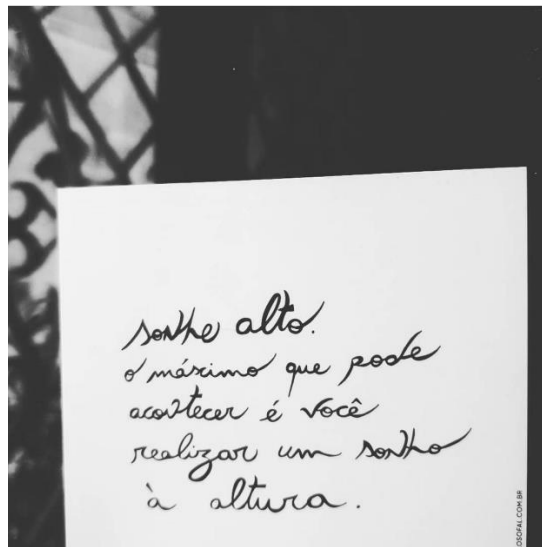 sonhe alto.
o máximo que pode
acontecer é você
realizar um sonho
à altura.
OSOFAL.COM.BR